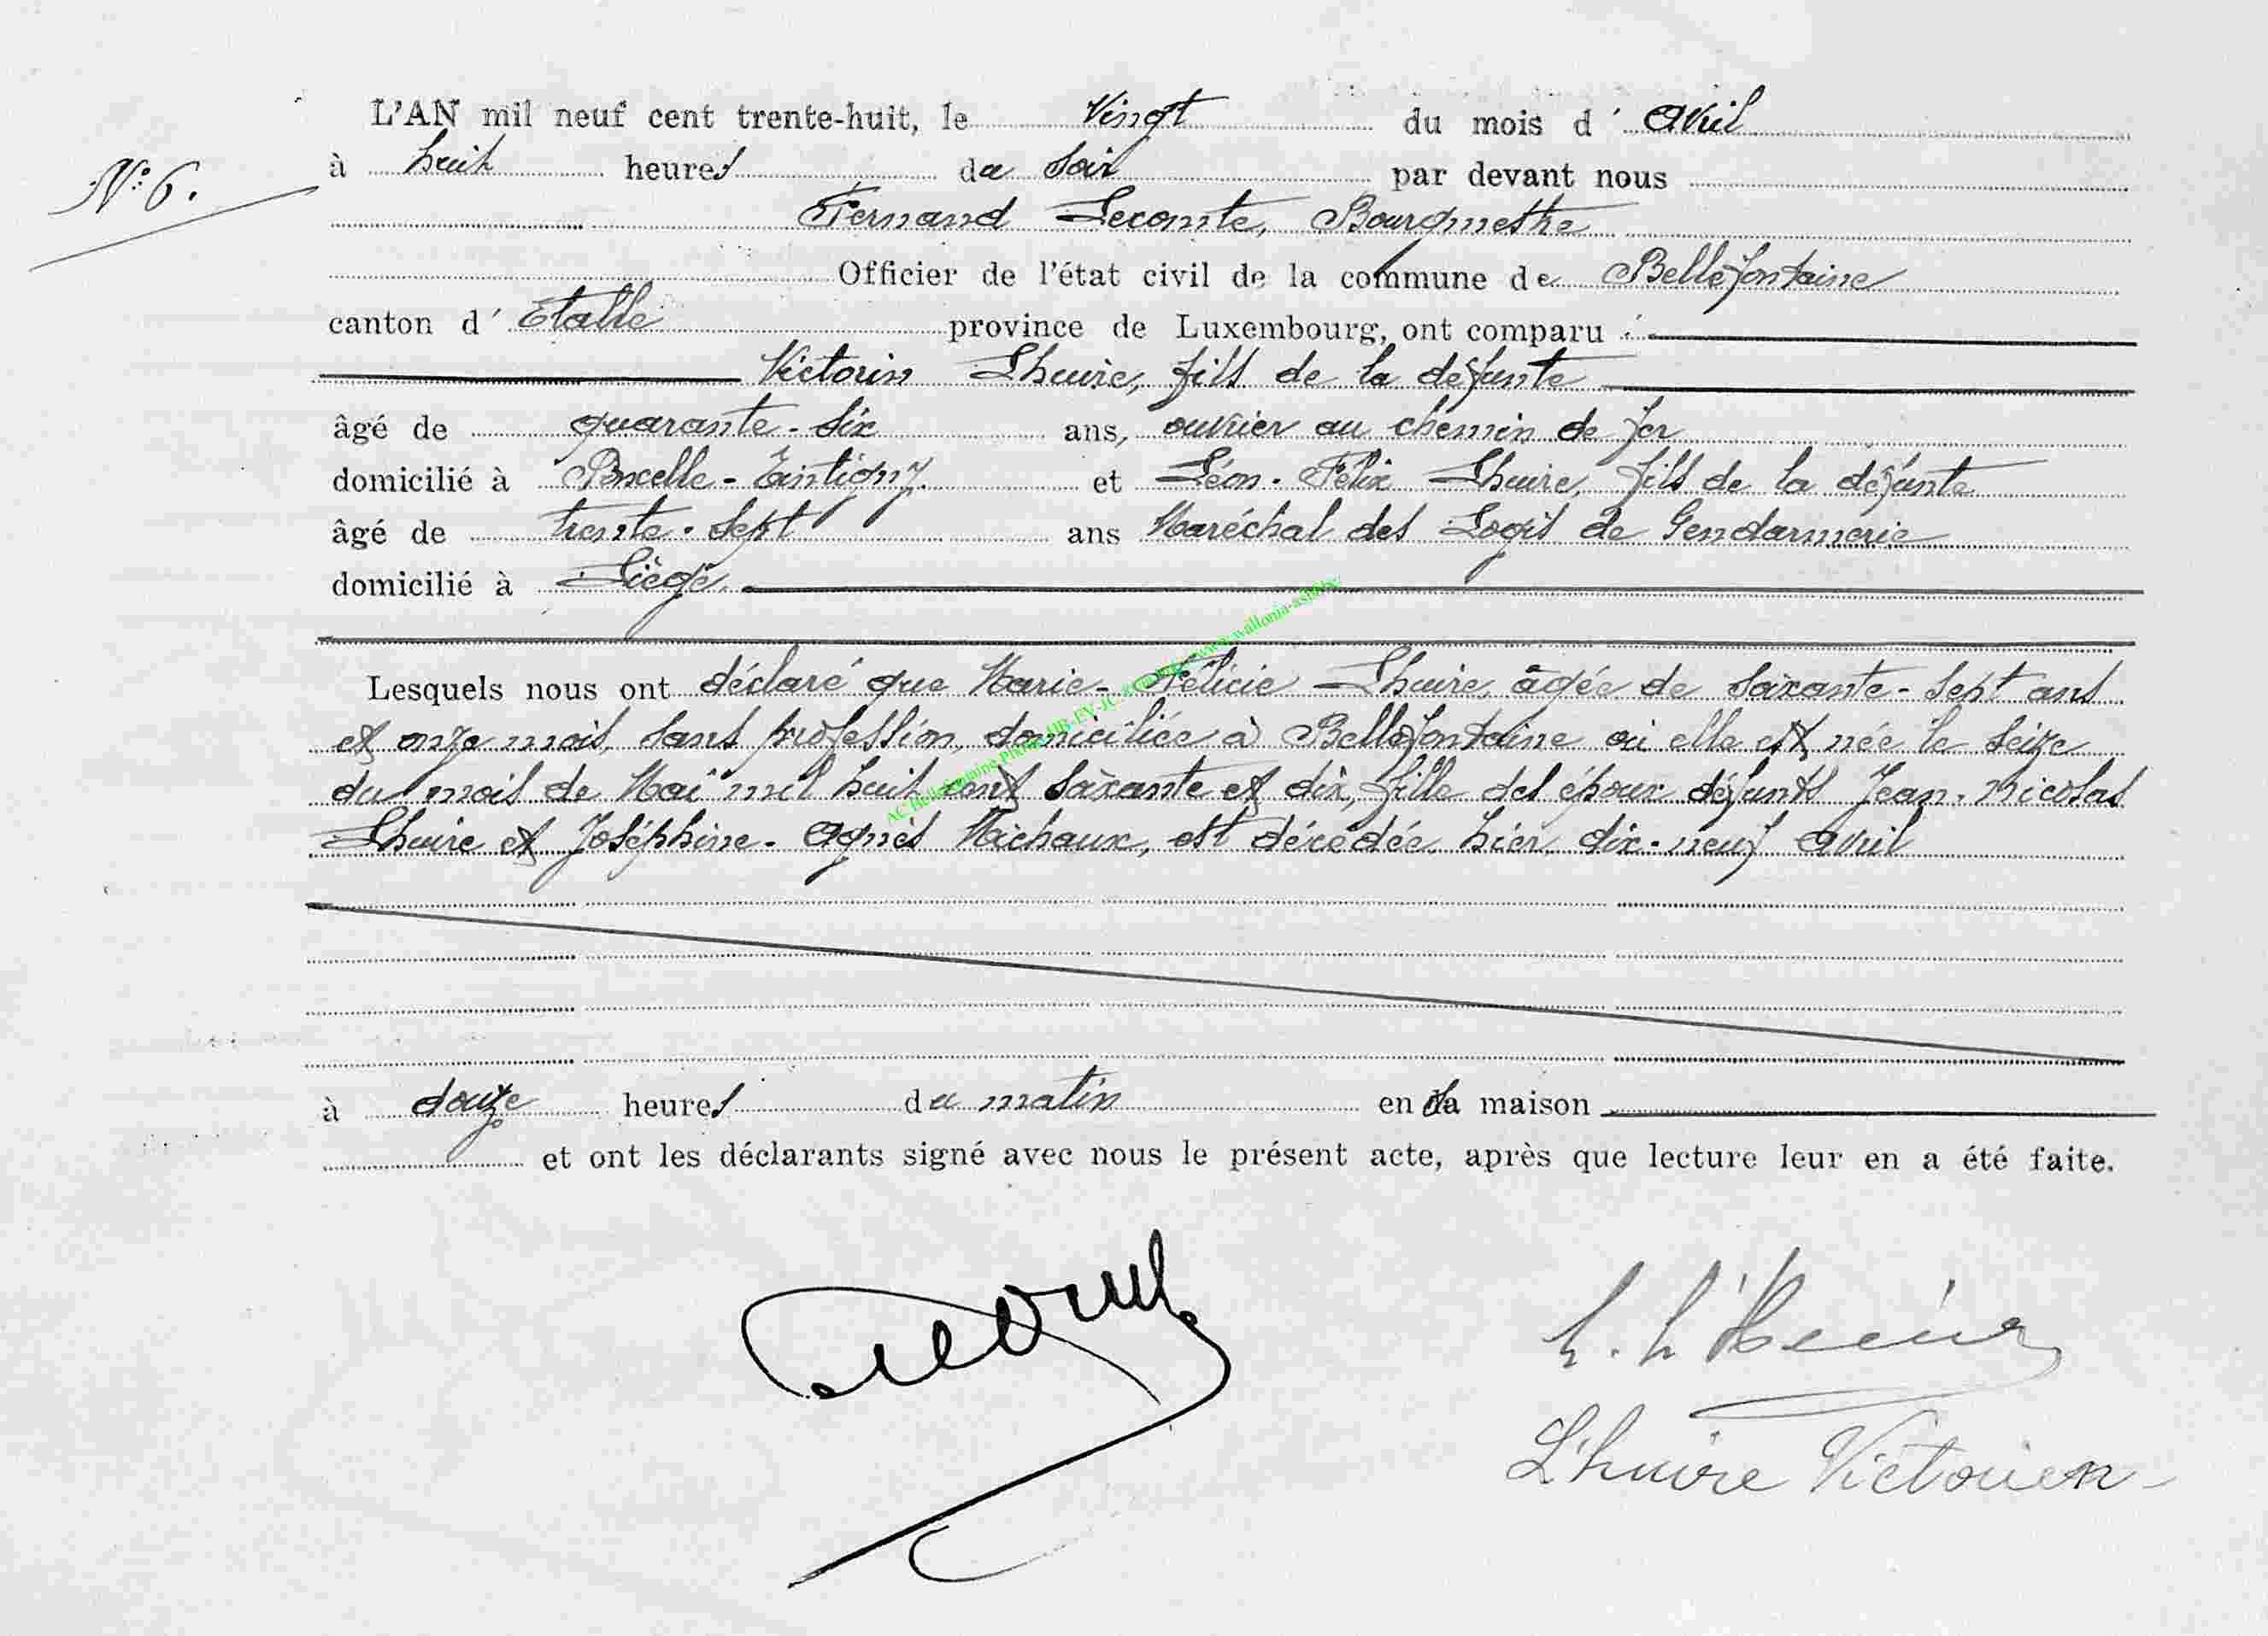 N° 6.
L'AN mil neuf cent trente-huit, le Vingt du mois d' Avril
à huit heures du soir par devant nous
Fernand Lecomte, Bourgmestre
Officier de l'état civil de la commune de Bellefontaine
canton d' Etalle province de Luxembourg, ont comparu :
Victorin Lhuire, fils de la défunte
âgé de quarante-six ans, ouvrier au chemin de fer
domicilié à Poncelle-Tintigny. et Léon-Félix Lhuire, fils de la défunte
âgé de trente-sept ans Maréchal des Logis de Gendarmerie
domicilié à Liège.
Lesquels nous ont déclaré que Marie-Félicie Lhuire, âgée de soixante-sept ans
et onze mois, sans profession, domiciliée à Bellefontaine où elle est née le seize
du mois de Mai mil huit cent soixante et dix, fille des époux défunts Jean-Nicolas
Lhuire et Joséphine-Agnès Michaux, est décédée, hier, dix-neuf Avril
à douze heures du matin en sa maison
et ont les déclarants signé avec nous le présent acte, après que lecture leur en a été faite.
L'huire Victorien